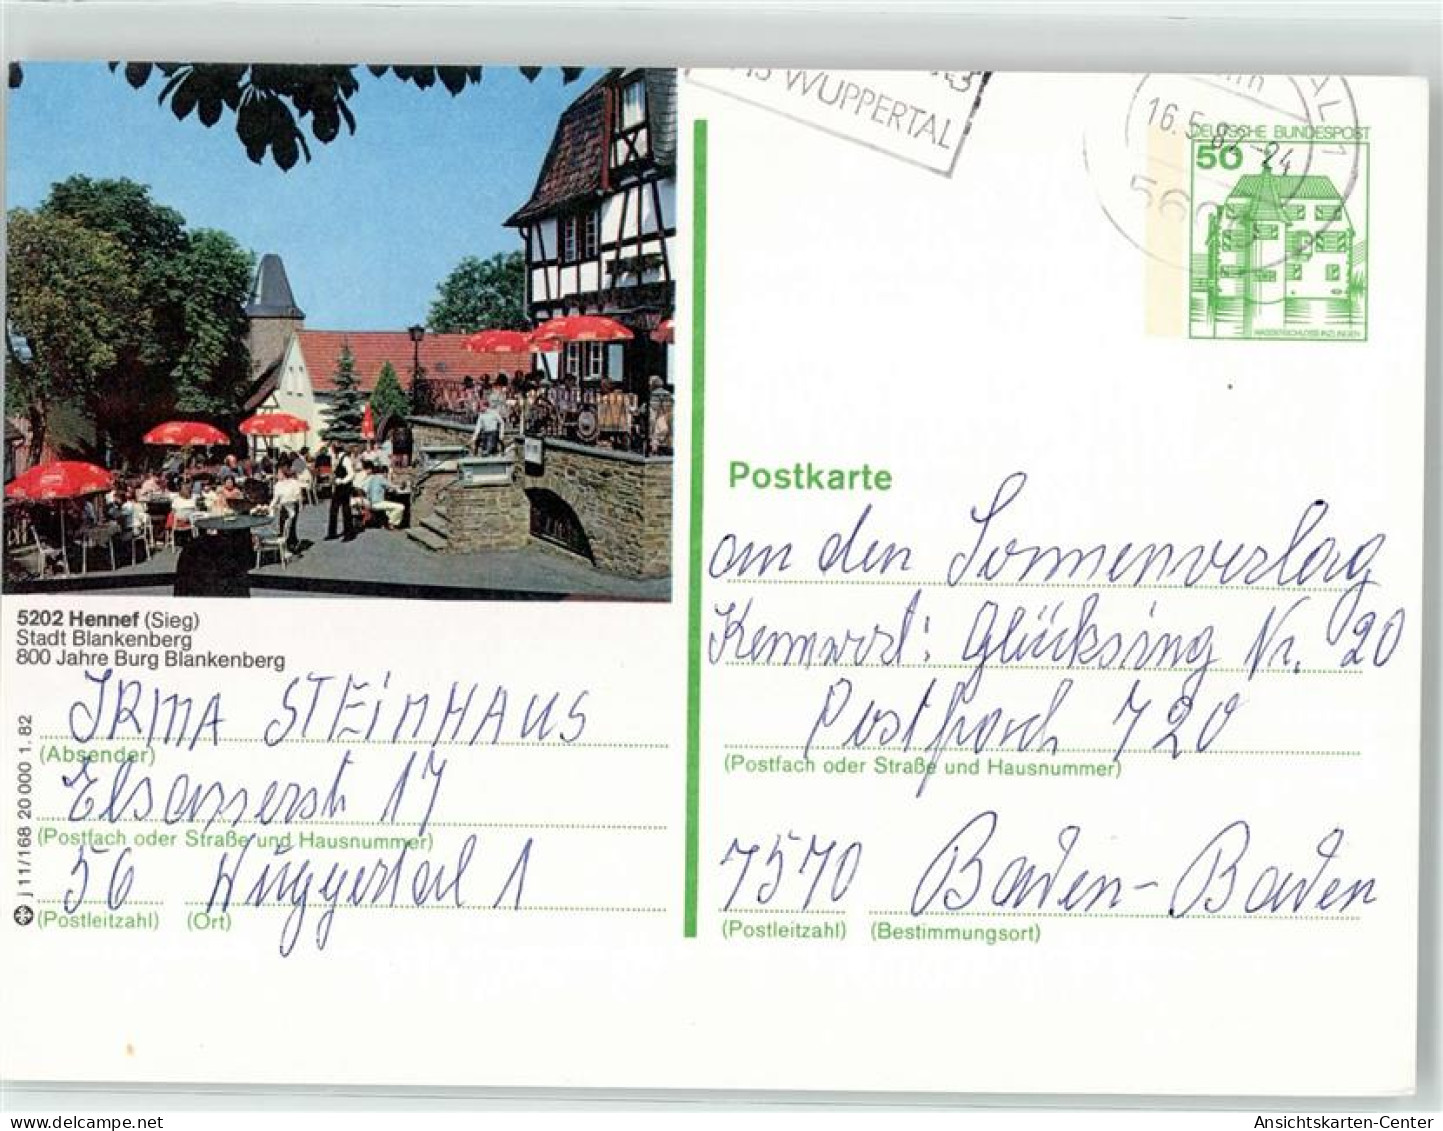 WUPPERTAL
16.5.82-24
DEUTSCHE BUNDESPOST
50
WASSERSCHLOSS INZLINGEN
5202 Hennef (Sieg)
Stadt Blankenberg
800 Jahre Burg Blankenberg
IRMA STEINHAUS
(Absender)
Elsasserstr 17
(Postfach oder Straße und Hausnummer)
56 Wuppertal 1
(Postleitzahl) (Ort)
j 11/168 20 000 1. 82
Postkarte
an den Sonnenverlag
Kennwort: Glücksring Nr. 20
Postfach 720
(Postfach oder Straße und Hausnummer)
7570 Baden-Baden
(Postleitzahl) (Bestimmungsort)
Ansichtskarten-Center